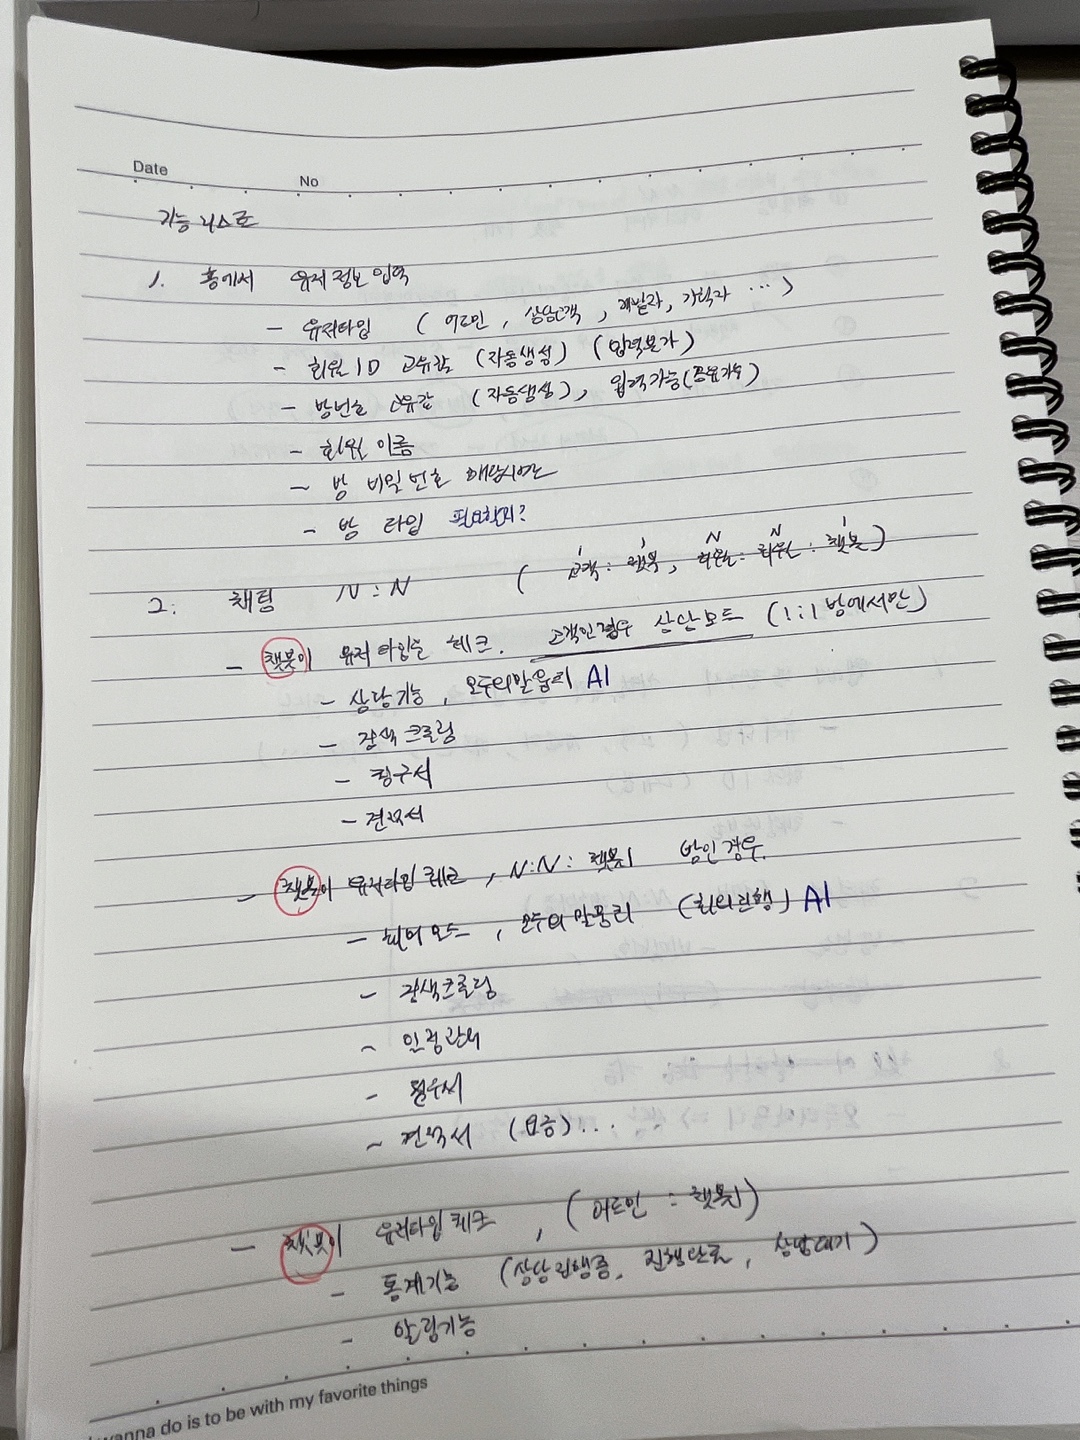 Date
No
기능 리스트
1. 홈에서 유저 정보 입력
- 유저타입 ( 어드민, 상담고객, 개발자, 기획자 ... )
- 회원 ID 고유값 (자동생성) (입력불가)
- 방번호 고유값 (자동생성), 입력가능(중요가수)
- 회원 이름
- 방 비밀번호 해당시만
- 방 타입 필요한지?
1 1 N N 1
2. 채팅 N:N ( 고객 : 챗봇, 회원 : 회원 : 챗봇 )
- 챗봇이 유저 타입을 체크. 고객인경우 상담모드 (1:1 방에서만)
- 상담기능, 모두의말뭉치 AI
- 검색크롤링
- 청구서
- 견적서
- 챗봇이 유저타입 체크, N:N: 챗봇1 방인 경우.
- 회의 모드, 모두의 말뭉치 (회의진행) AI
- 검색크롤링
- 일정관리
- 발주서
- 견적서 (요금)...
- 챗봇이 유저타입 체크, (어드민 : 챗봇)
- 통계기능 (상담진행중, 진행완료, 상담대기)
- 알림기능
wanna do is to be with my favorite things